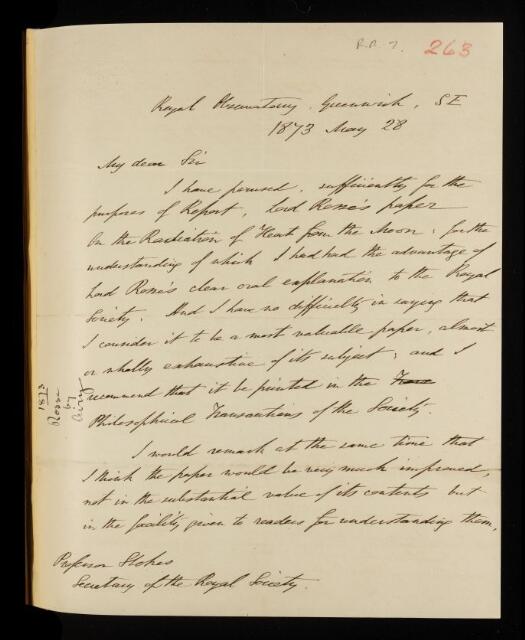 R.R. 7. 263
Royal Observatory, Greenwich, SE
1873 May 28
My dear Sir
I have perused, sufficiently for the
purposes of Report, Lord Rosse's paper
On the Radiation of Heat from the Moon, for the
understanding of which I had had the advantage of
Lord Rosse's clear oral explanation to the Royal
Society. And I have no difficulty in saying that
I consider it to be a most valuable paper, almost
or wholly exhaustive of its subject; and I
recommend that it be printed in the Trans
Philosophical Transactions of the Society.
I would remark at the same time that
I think the paper would be very much improved,
not in the substantial value of its contents but
in the facility given to readers for understanding them,
Professor Stokes
Secretary of the Royal Society.
1873
Rosse
by
Airy